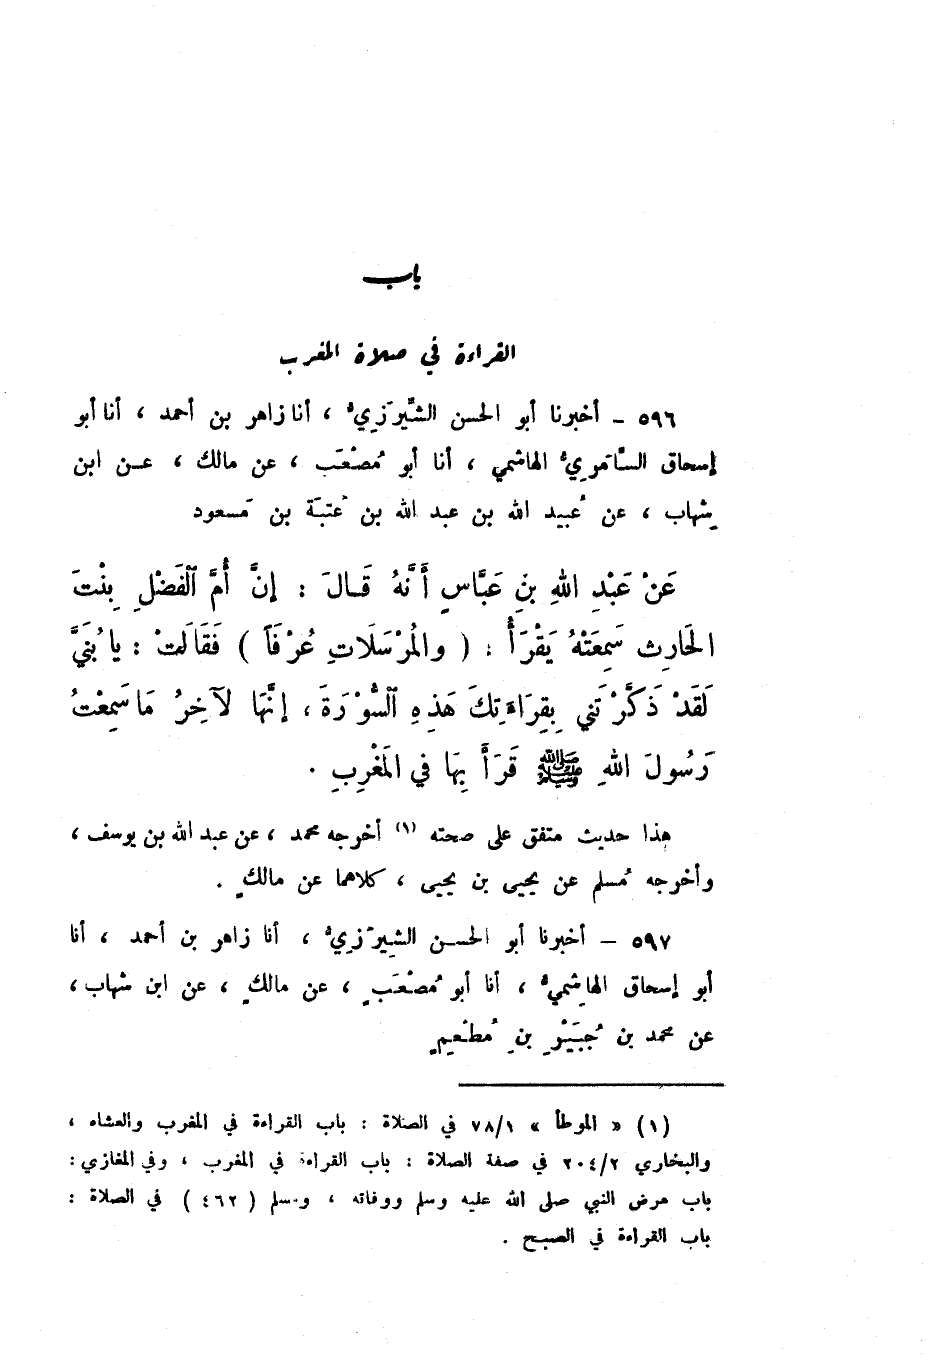 باب
القراءة في صلاة المغرب
٥٩٦ – أخبرنا أبو الحسن الشِّيرَزِيُّ ، أنا زاهر بن أحمد ، أنا أبو
إسحاق السَّامَرِيُّ الهاشمي ، أنا أبو مُصْعَب ، عن مالك ، عـن ابن
شِهاب ، عن عُبيد الله بن عبد الله بن عُتبَة بن مَسعود
عَنْ عَبْدِ اللهِ بنِ عَبَّاسٍ أَنَّهُ قَالَ : إنَّ أُمَّ الْفَضْلِ بِنْتَ
الحَارِث سَمِعَتْهُ يَقْرَأُ : ( والْمُرْسَلَاتِ عُرْفَاً ) فَقَالَتْ : يا بُنَيَّ
لَقَدْ ذَكَّرْتَني بِقِرَاءَتِكَ هَذِهِ السُّورَةَ ، إنَّهَا لَآخِرُ مَا سَمِعْتُ
رَسُولَ اللهِ ﷺ قَرَأَ بِهَا في المَغْرِبِ .
هذا حديث متفق على صحته (١) أخرجه محمد ، عن عبد الله بن يوسف ،
وأخرجه مُسلم عن يحيى بن يحيى ، كلاهما عن مالكٍ .
٥٩٧ – أخبرنا أبو الحسـن الشِيرَزِيُّ ، أنا زاهر بن أحمد ، أنا
أبو إسحاق الهاشِميُّ ، أنا أبو مُصْعَبٍ ، عن مالكٍ ، عن ابن شهاب ،
عن محمد بن جُبَيْرٍ بنِ مُطْعِمٍ
(١) « الموطأ » ٧٨/١ في الصلاة : باب القراءة في المغرب والعشاء ،
والبخاري ٢٠٤/٢ في صفة الصلاة : باب القراءة في المغرب ، وفي المغازي :
باب مرض النبي صلى الله عليه وسلم ووفاته ، ومسلم ( ٤٦٢ ) في الصلاة :
باب القراءة في الصبح .